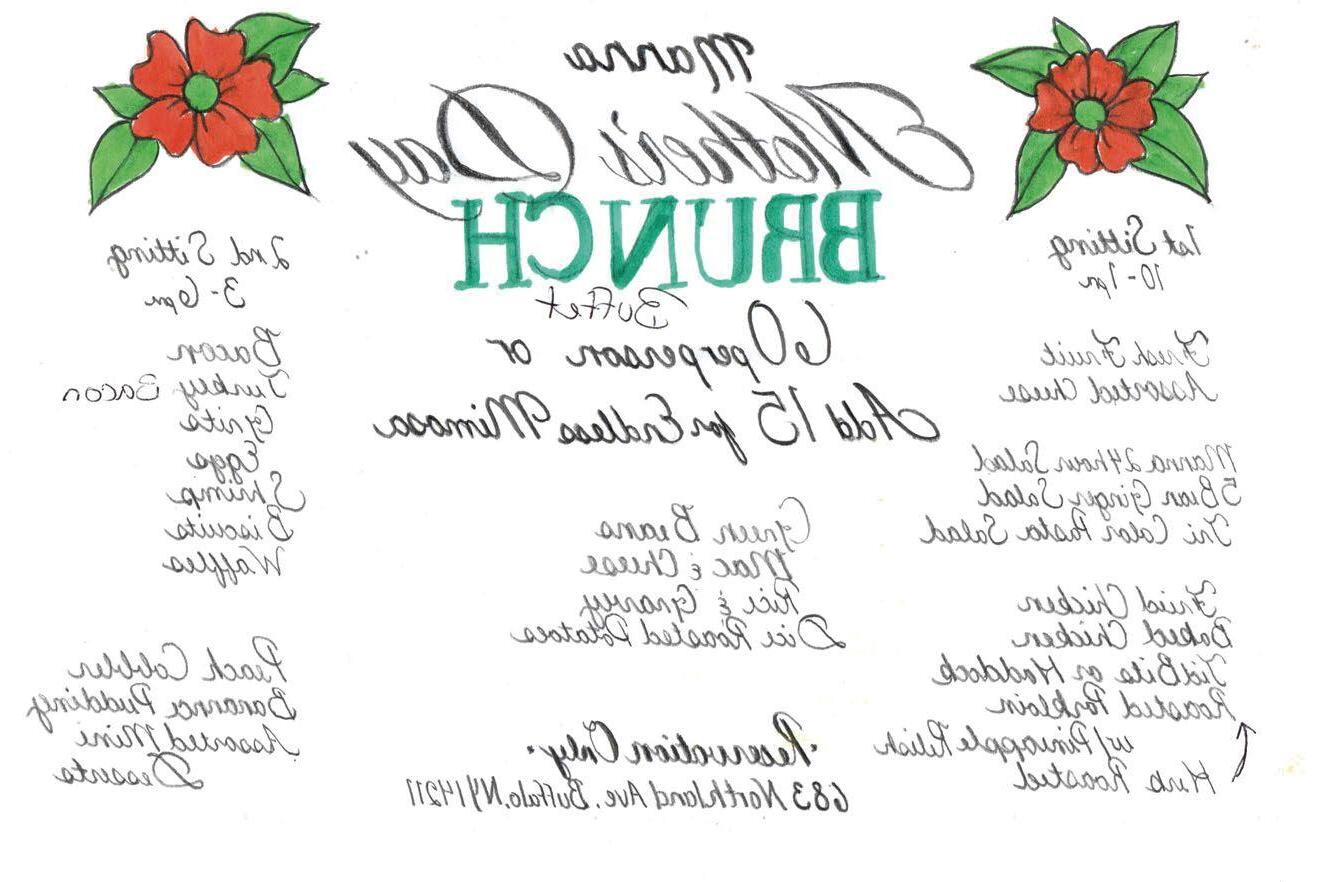 Manna
Mother's Day
BRUNCH
Buffet
60 per person or
Add 15 for Endless Mimosa
1st Sitting
10-1pm
Fresh Fruit
Assorted Cheese
Manna 24 hour Salad
5 Bean Ginger Salad
Tri Color Pasta Salad
Fried Chicken
Baked Chicken
TidBits or Haddock
Roasted Porkloin
w/ Pineapple Relish
Herb Roasted
Green Beans
Mac & Cheese
Rice & Gravy
Dice Roasted Potatoes
·Reservation Only·
683 Northland Ave. Buffalo, NY 14211
2nd Sitting
3-6pm
Bacon
Turkey Bacon
Grits
Eggs
Shrimp
Biscuits
Waffles
Peach Cobbler
Bananna Pudding
Assorted Mini
Desserts